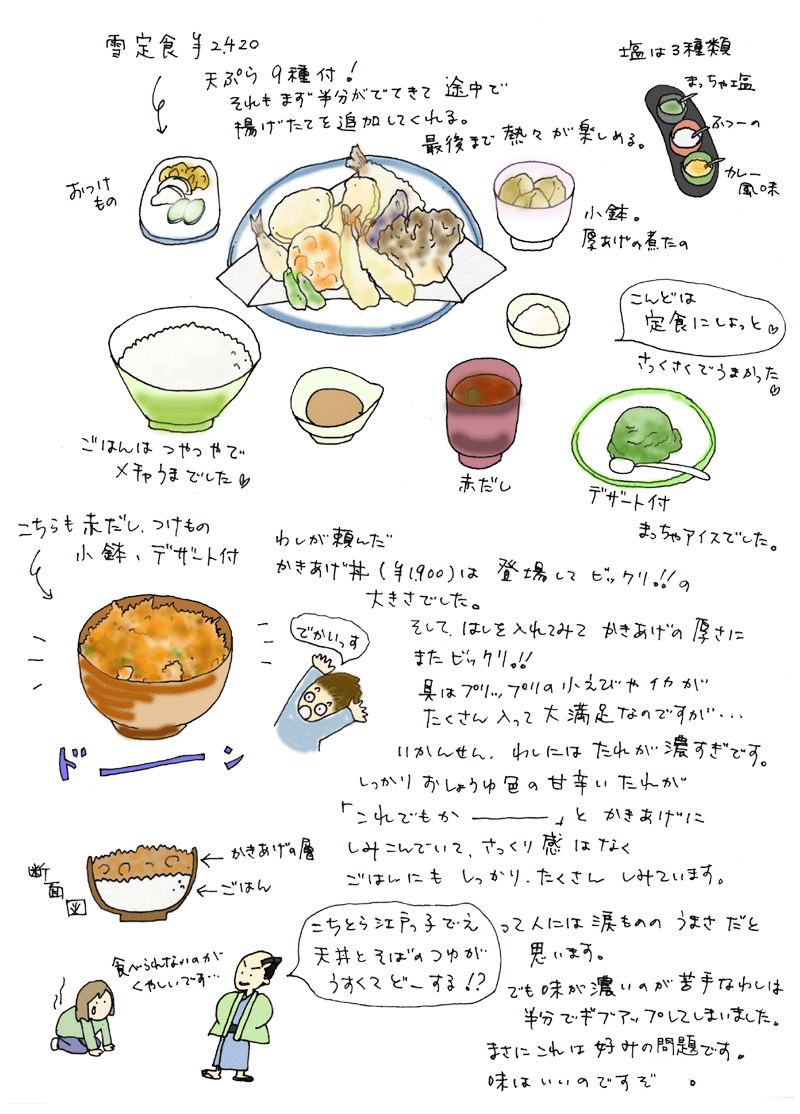 雪定食 ¥2,420
天ぷら 9種付!
それもまず半分がでてきて 途中で
揚げたてを追加してくれる。
最後まで 熱々が楽しめる。
塩は3種類
まっちゃ塩
ふつーの
カレー
風味
おつけ
もの
小鉢。
厚あげの煮たの
こんどは
定食にしよっと♡
さっくさくでうまかった♡
ごはんは つやつやで
メチャうまでした♡
赤だし
デザート付
まっちゃアイスでした。
こちらも 赤だし、つけもの
小鉢、デザート付
わしが頼んだ
かきあげ丼(¥1,900)は 登場して ビックリ!!の
大きさでした。
でかいっす
そして、はしを入れてみて かきあげの厚さに
またビックリ!!
具はプリップリの小えびやイカが
たくさん入って 大満足なのですが・・・
いかんせん、わしには たれが濃すぎです。
ドーーン
しっかり おしょうゆ色の 甘辛い たれが
「これでもか ―――」と かきあげに
しみこんでいて、さっくり感はなく
ごはんにも しっかり、たくさん しみています。
断面図
かきあげの層
ごはん
こちとら江戸っ子でえ
天丼とそばのつゆが
うすくて どーする!?
って人には 涙ものの うまさ だと
思います。
食べられないのが
くやしいです…
でも味が濃いのが苦手なわしは
半分でギブアップしてしまいました。
まさにこれは 好みの問題です。
味はいいのですぞ 。